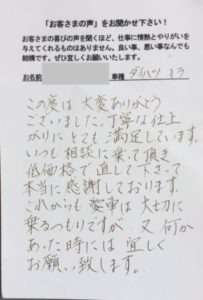 「お客さまの声」をお聞かせ下さい！
お客さまの喜びの声を聞くほど、仕事に情熱とやりがいを
与えてくれるものはありません。良い事、悪い事なんでも
結構です。ぜひ宜しくお願いいたします。
お名前 車種 ダイハツ ミラ
この度は大変ありがとう
ございました。丁寧な仕上
がりにとても満足しています。
いつも相談に乗って頂き
低価格で直して下さって
本当に感謝しております。
これからも愛車は大切に
乗るつもりですが、又何か
あった時には宜しく
お願い致します。